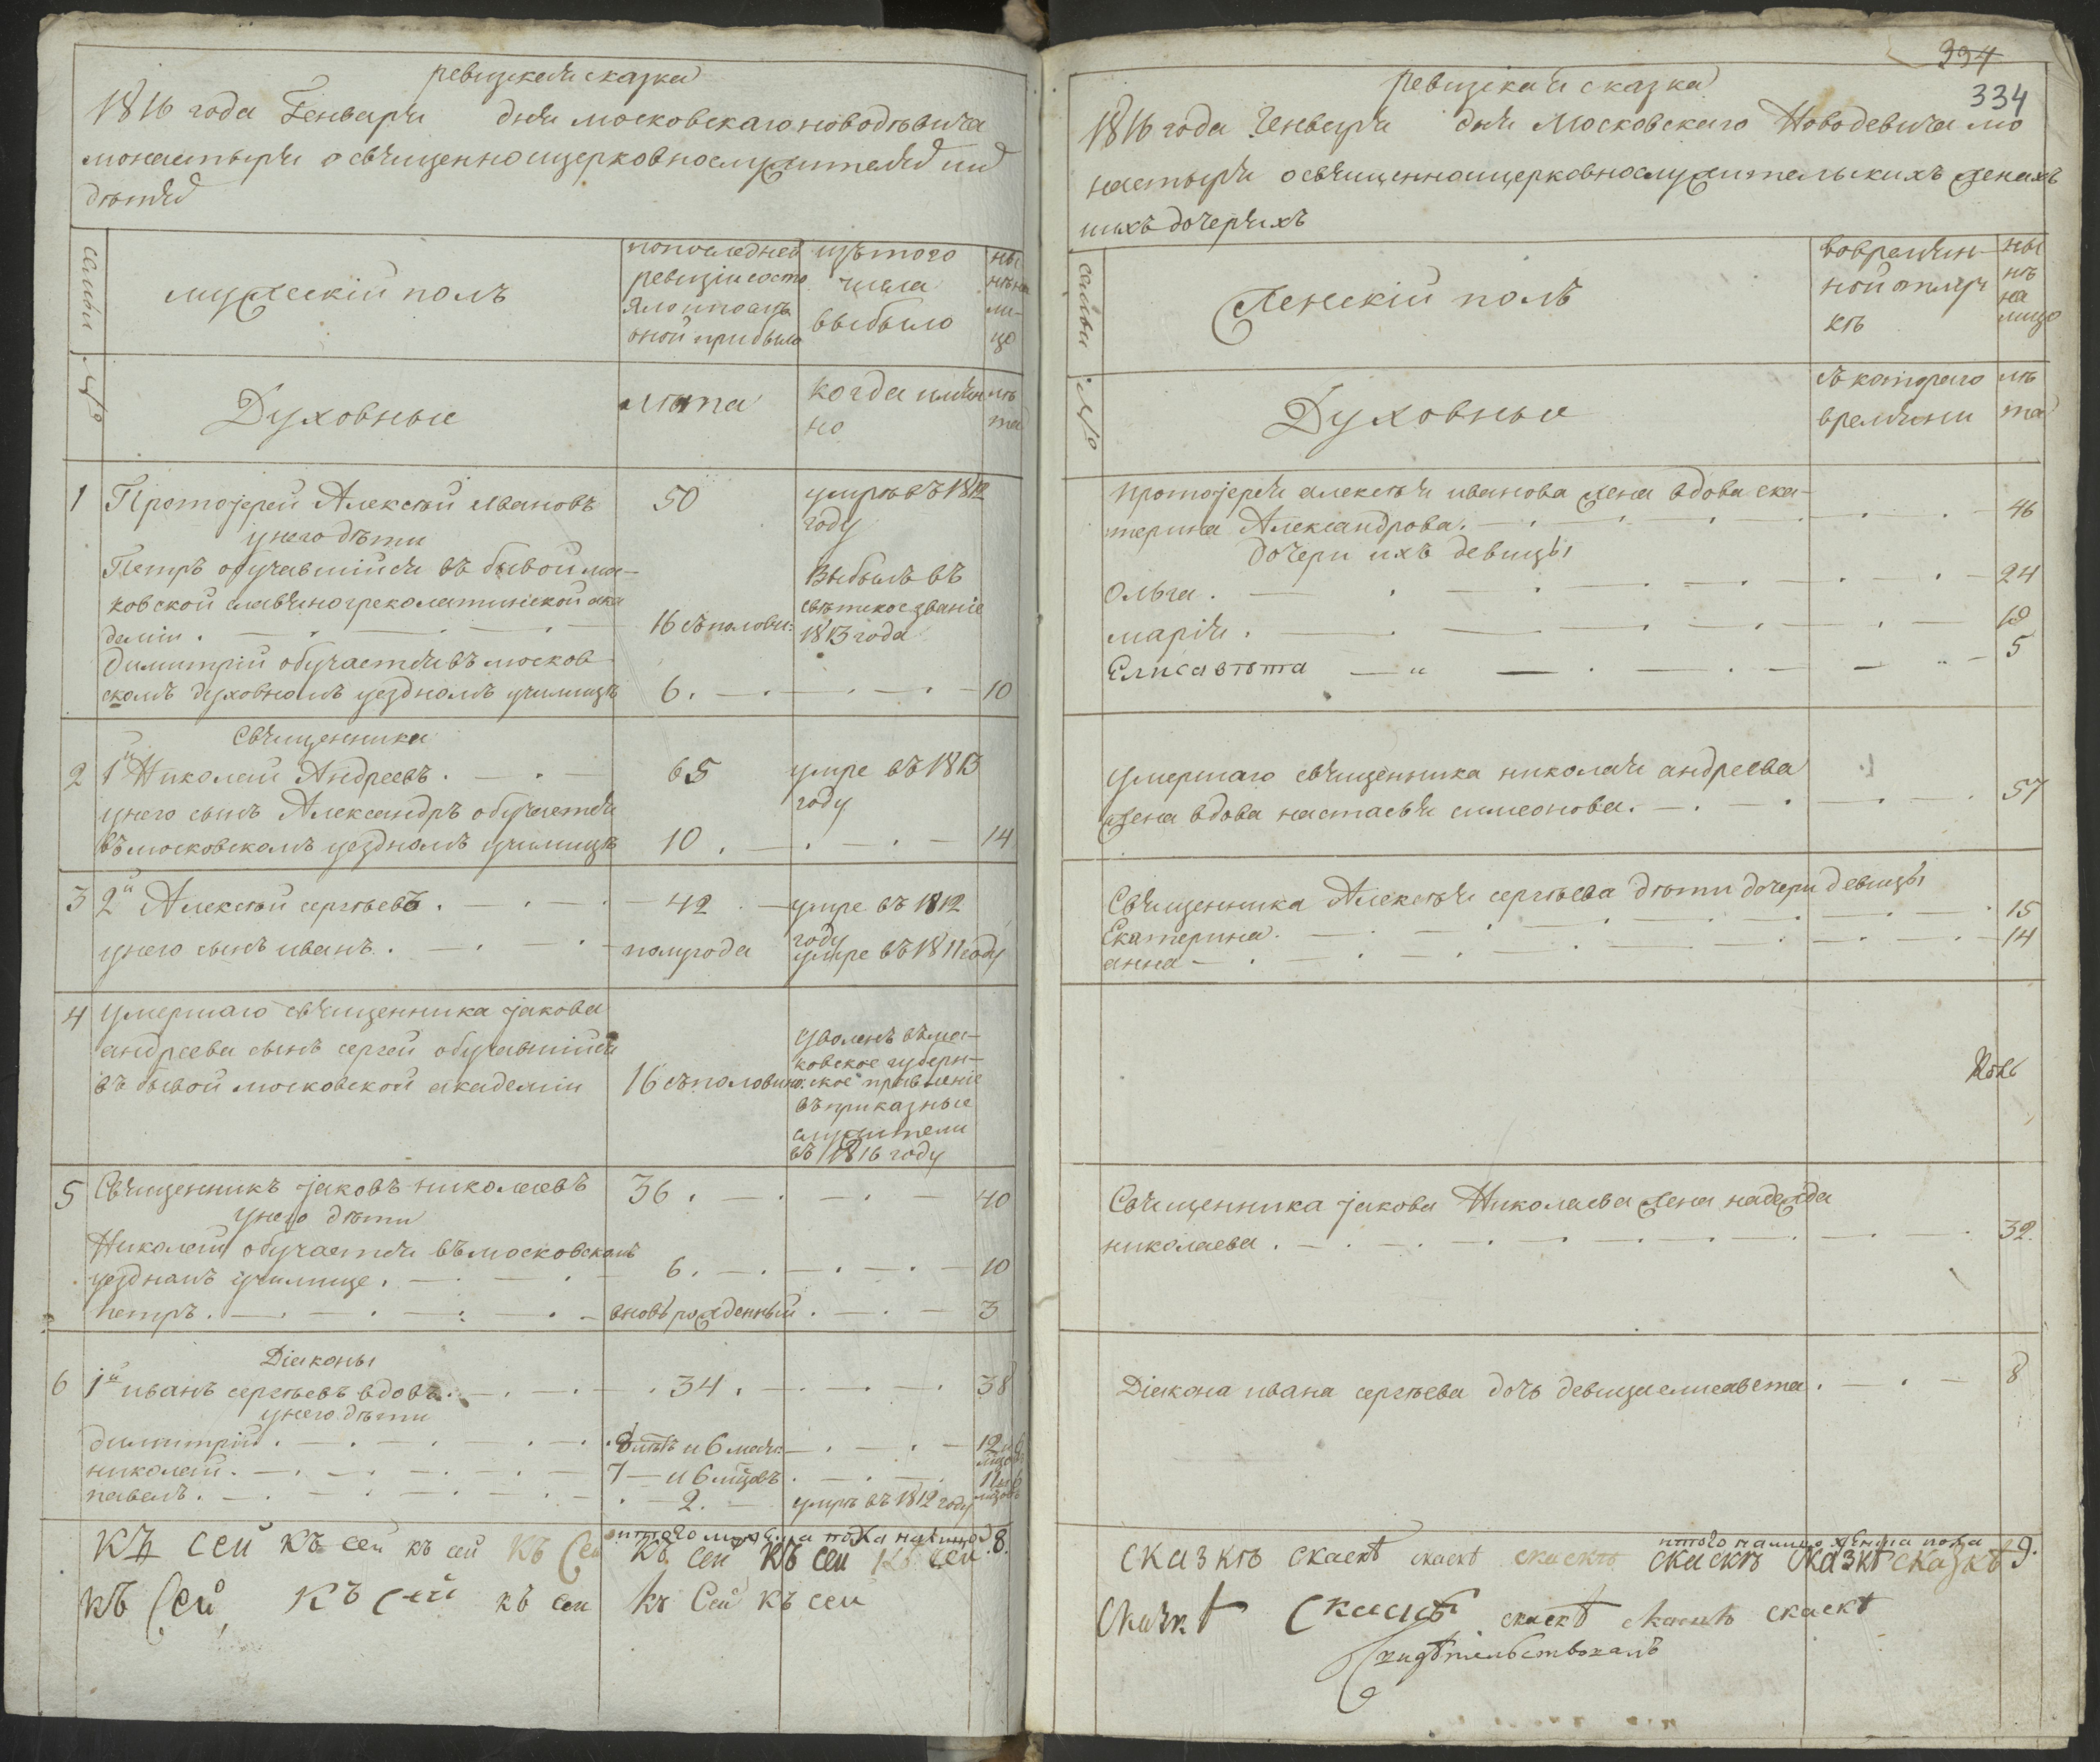 ревизская сказка
1816 года Генваря дня московскаго новодѣвича
монастыря о священноицерковнослужителяхъ и ихъ
дѣтяхъ
семьи
мужескій полъ
попоследней
ревизіи состо
яло и послѣ
оной прибыло
изъ того
числа
выбыло
ны
нѣ на
ли-
цо
№
Духовные
лѣта
когда имян
но
лѣ
та
1 Протоіерей Алексѣй Ивановъ 50 умре въ 1812
году
у него дѣти
Петръ обучавшійся въ бывой мос-
ковской славяногреколатинской ака
деміи. 16 съ полови: Выбылъ въ
свѣтское званіе
1813 года
Димитрій обучается въ москов
скомъ духовномъ уездномъ училищѣ 6. 10
Священники
2 1й Николай Андреевъ. 65 умре въ 1813
году
у него сынъ Александръ обучается
въ московскомъ уездномъ училищѣ 10. 14
3 2й Алексѣй сергѣевъ. 42 умре въ 1812
году
у него сынъ иванъ. полугода умре въ 1811 году
4 умершаго священника јакова
андреева сынъ сергей обучавшійся
въ бывой московской академіи 16 съ половин. уволенъ въ мос-
ковское губерн-
ское правленіе
въ приказные
служители
въ 1816 году
5 Священникъ јаковъ николаевъ 36. 40
у него дѣти
Николай обучается въ московскомъ
уездномъ училище. 6. 10
петръ. вновь рожденный. 3
Діаконы
6 1й иванъ сергѣевъ вдовъ. 34. 38
у него дѣти
димитрій. 8 лѣтъ и 6 месяц: 12 и 6
мцовъ
николай. 7 — и 6 мцовъ 11 и 6
мцовъ
павелъ. 2. умре въ 1812 году
итого мужеска пола налицо 8.
Къ сей къ сей къ сей къ сей къ сей къ сей къ сей
къ Сей къ сей къ сей къ Сей къ сей
334
334
ревизская сказка
1816 года Генваря дня Московскаго Новодевича мо
настыря о священноицерковнослужительскихъ женахъ
и ихъ дочеряхъ
семьи
Женскій полъ
вовремян-
ной отлуч
кѣ
ны
нѣ
на
лицо
№
Духовные
съ котораго
времяни
лѣ
та
протоіерея алексѣя иванова жена вдова ека-
терина Александрова. 46
дочери ихъ девицы
Ольга. 24
марія. 18
Елисавѣта 5
умершаго священника николая андреева
жена вдова настасья симеонова. 57
Священника Алексѣя сергѣева дѣти дочери девицы
Екатерина. 15
анна 14
Священника јакова Николаева жена надежда
николаева. 32.
Діакона ивана сергѣева дочь девица елисавета. 8
итого налицо женска пола 9.
сказкѣ скаскѣ скаскѣ скаскѣ скаскѣ сказкѣ сказкѣ
Сказкѣ Скаскѣ скаскѣ скаскѣ скаскѣ
Свидѣтельствовалъ